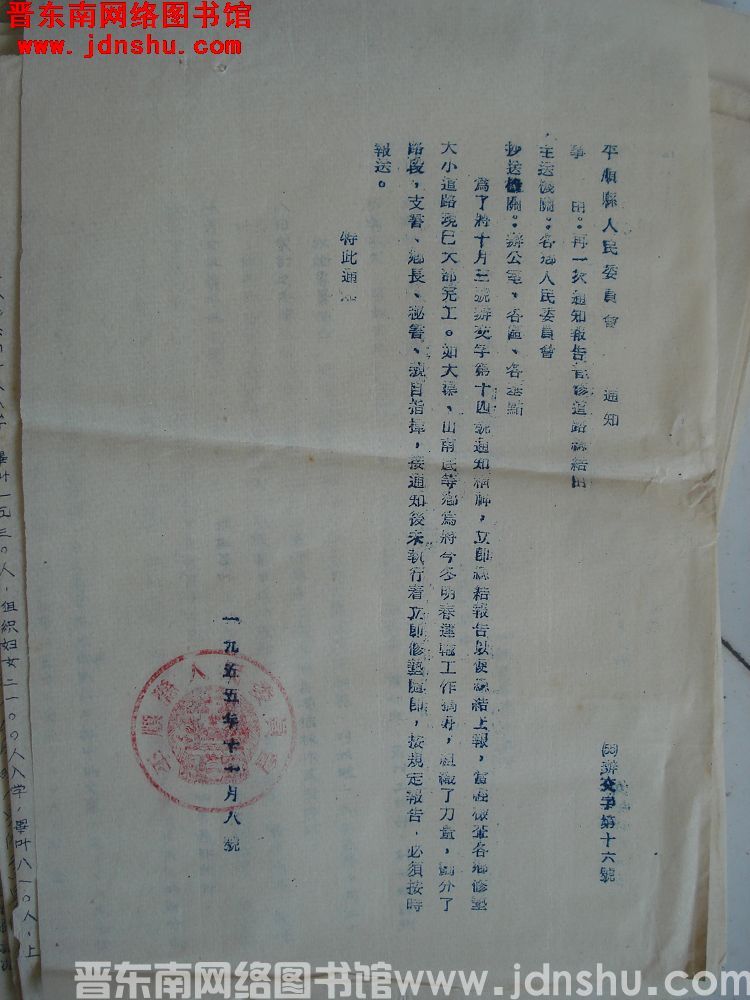 晋东南网络图书馆
www.jdnshu.com
平順縣人民委員會 通知
(55)辦交字第十六號
事 由：再一次通知報告首修道路總結由
主送機關：各鄉人民委員會
抄送機關：辦公室、各區、各基點
為了將十月三號辦交字第十四號通知精神，立即總結報告以便總結上報，
各鄉修墊
大小道路現已大部完工。如大渠、山南底等鄉為將今冬明春運輸工作搞好，組織了力量，
路段，支書、鄉長、秘書、親自指揮，接通知後未執行者立即修墊
，按規定報告，必須按時
報送。
特此通知
一九五五年十一月八號
畢叶一五三〇人，組織妇女二一〇〇人入学，畢叶八一〇人，上
晋东南网络图书馆www.jdnshu.com